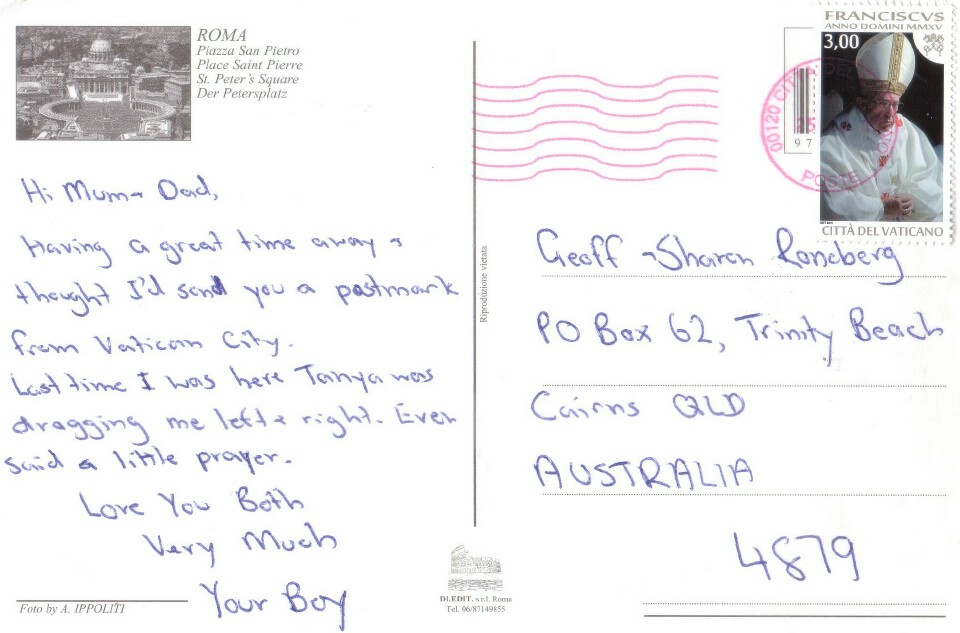 ROMA
Piazza San Pietro
Place Saint Pierre
St. Peter's Square
Der Petersplatz
Hi Mum + Dad,
Having a great time away +
thought I'd send you a postmark
from Vatican City.
Last time I was here Tanya was
dragging me left + right. Even
said a little prayer.
Love You Both
Very Much
Your Boy
Foto by A. IPPOLITI
Riproduzione vietata
DI.EDIT. s.r.l. Roma
Tel. 06/87149855
FRANCISCVS
ANNO DOMINI MMXV
3,00
CITTÀ DEL VATICANO
00120 CITTA' DEL
POSTE
9 7
Geoff + Sharon Roneberg
PO Box 62, Trinity Beach
Cairns QLD
AUSTRALIA
4879